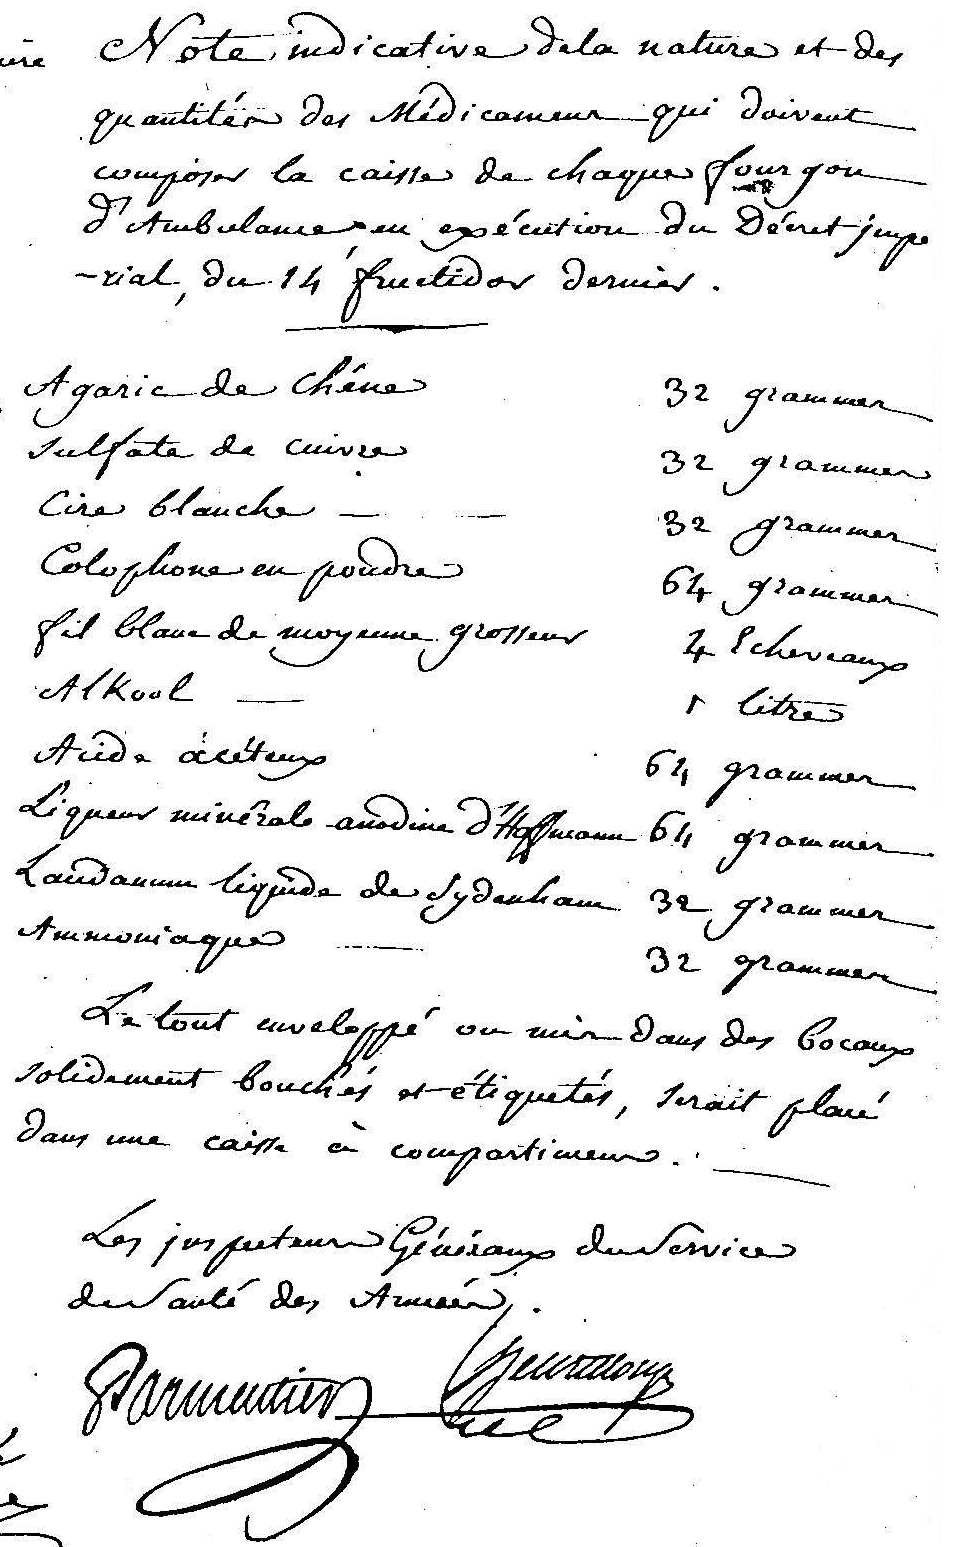 Note indicative de la nature et des
quantités des Médicamens qui doivent
composer la caisse de chaque fourgon
d'Ambulance, en exécution du Décret impé
-rial, du 14 fructidor dernier.
Agaric de Chêne 32 grammes
Sulfate de cuivre 32 grammes
Cire blanche — — 32 grammes
Colophone en poudre 64 grammes
fil blanc de moyenne grosseur 4 Echeveaux
Alkool — 1 litre
Acide acéteux 64 grammes
Liqueur minérale anodine d'Hoffmann 64 grammes
Laudanum liquide de Sydenham 32 grammes
Ammoniaque — 32 grammes
Le tout enveloppé ou mis dans des bocaux
solidement bouchés et étiquetés, serait placé
dans une caisse à compartimens. —
Les inspecteurs Généraux du Service
de Santé des Armées.
Parmentier Heurteloup